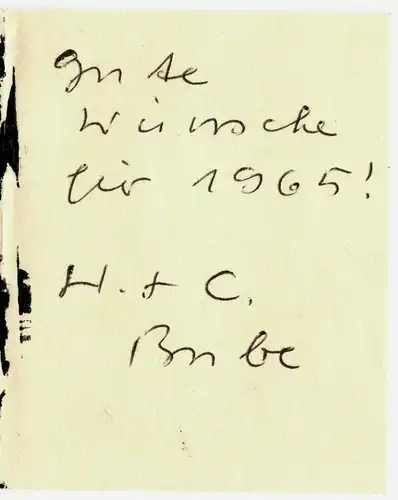 gute
Wünsche
für 1965!
H. + C.
Bube